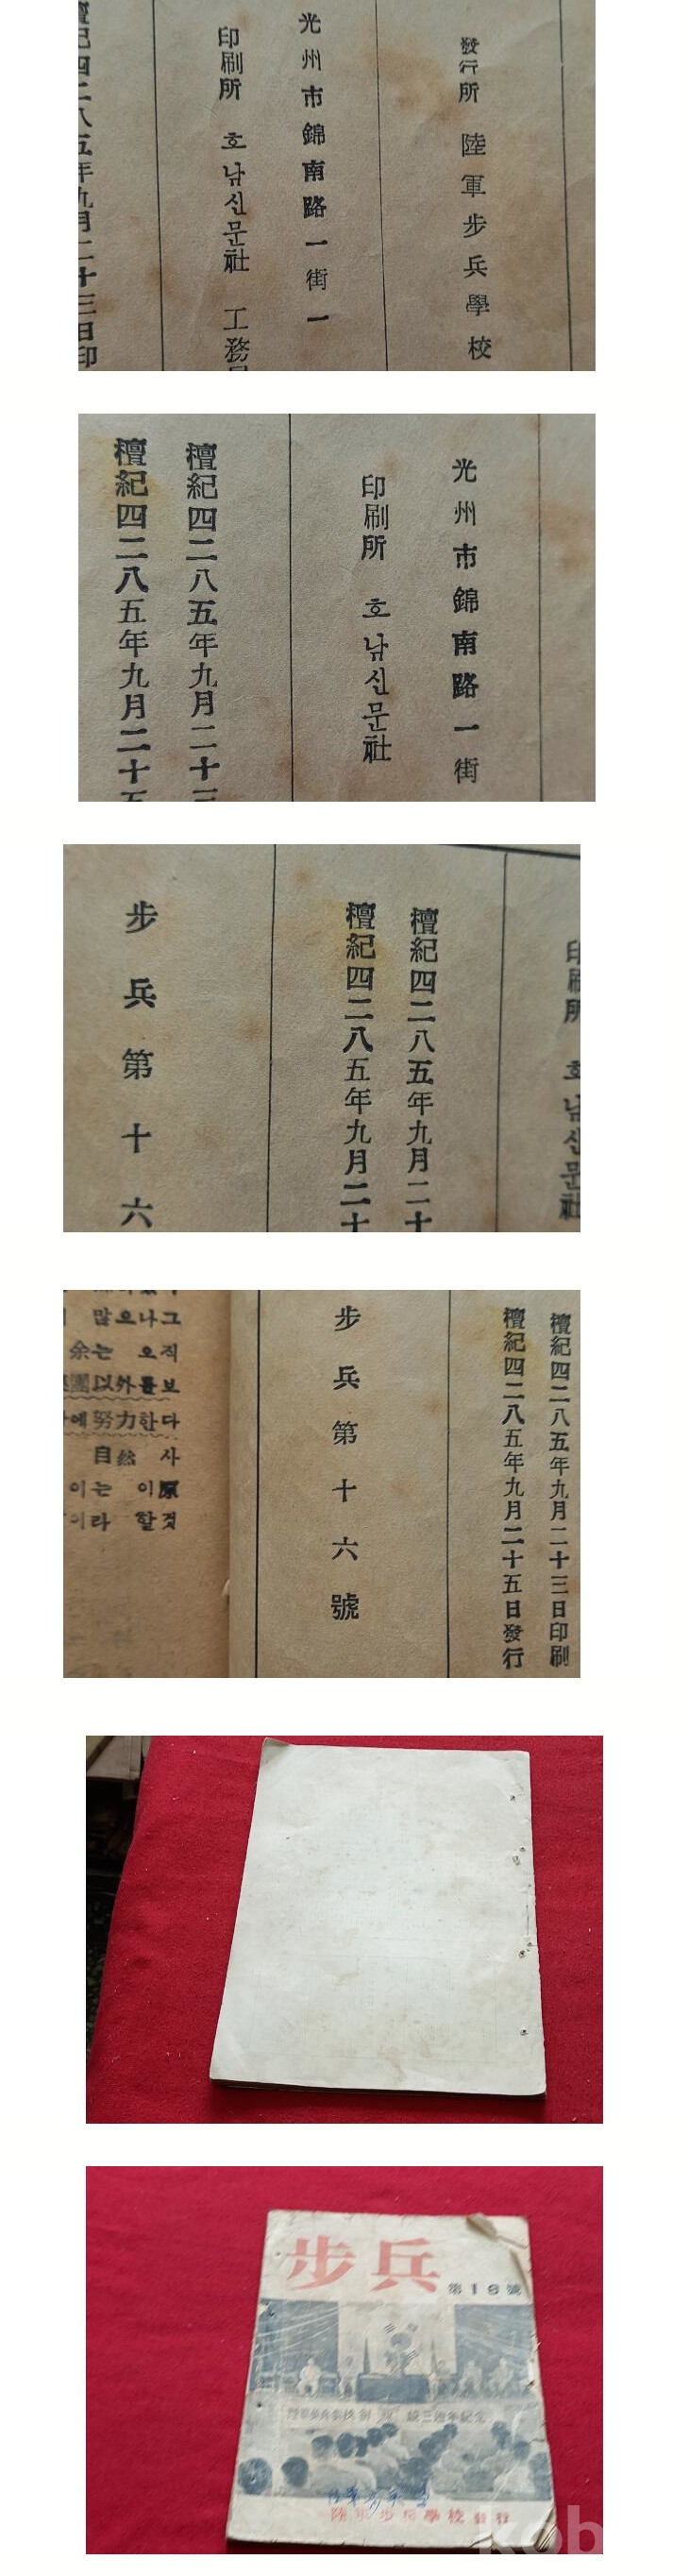 發行所 陸軍步兵學校
光州市錦南路一街一
印刷所 호남신문社 工務
檀紀四二八五年九月二十三日印
光州市錦南路一街
印刷所 호남신문社
檀紀四二八五年九月二十三
檀紀四二八五年九月二十五
印刷所 호남신문社
檀紀四二八五年九月二十
檀紀四二八五年九月二十
步兵第十六
檀紀四二八五年九月二十三日印刷
檀紀四二八五年九月二十五日發行
步兵第十六號
많으나그
余는 오직
團以外를보
에努力한다
自然 사
이는 이原
이라 할것
步兵
第16號
陸軍步兵學校創設三週年記念
陸軍步兵學校發行
kob